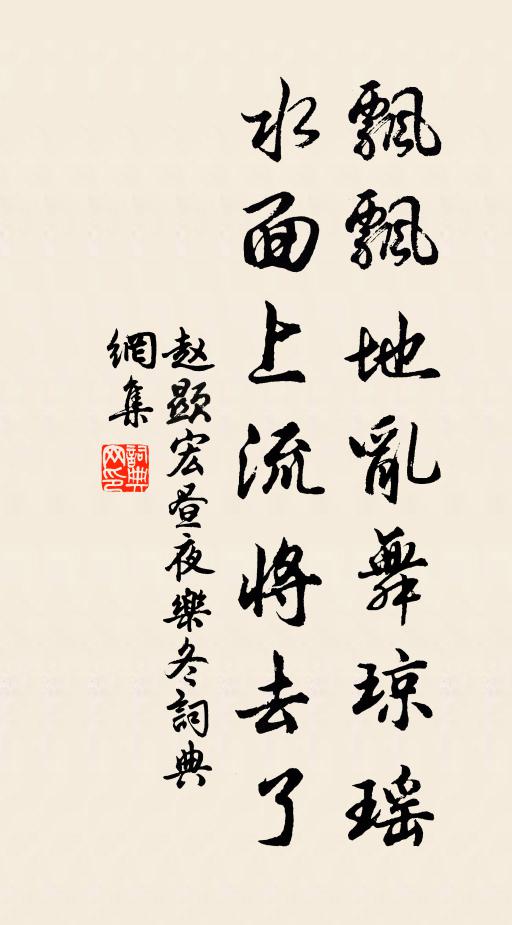 飄飄地亂舞琼瑶
水面上流將去了
赵顯宏昼夜樂冬詞典
網集
詞典
网印